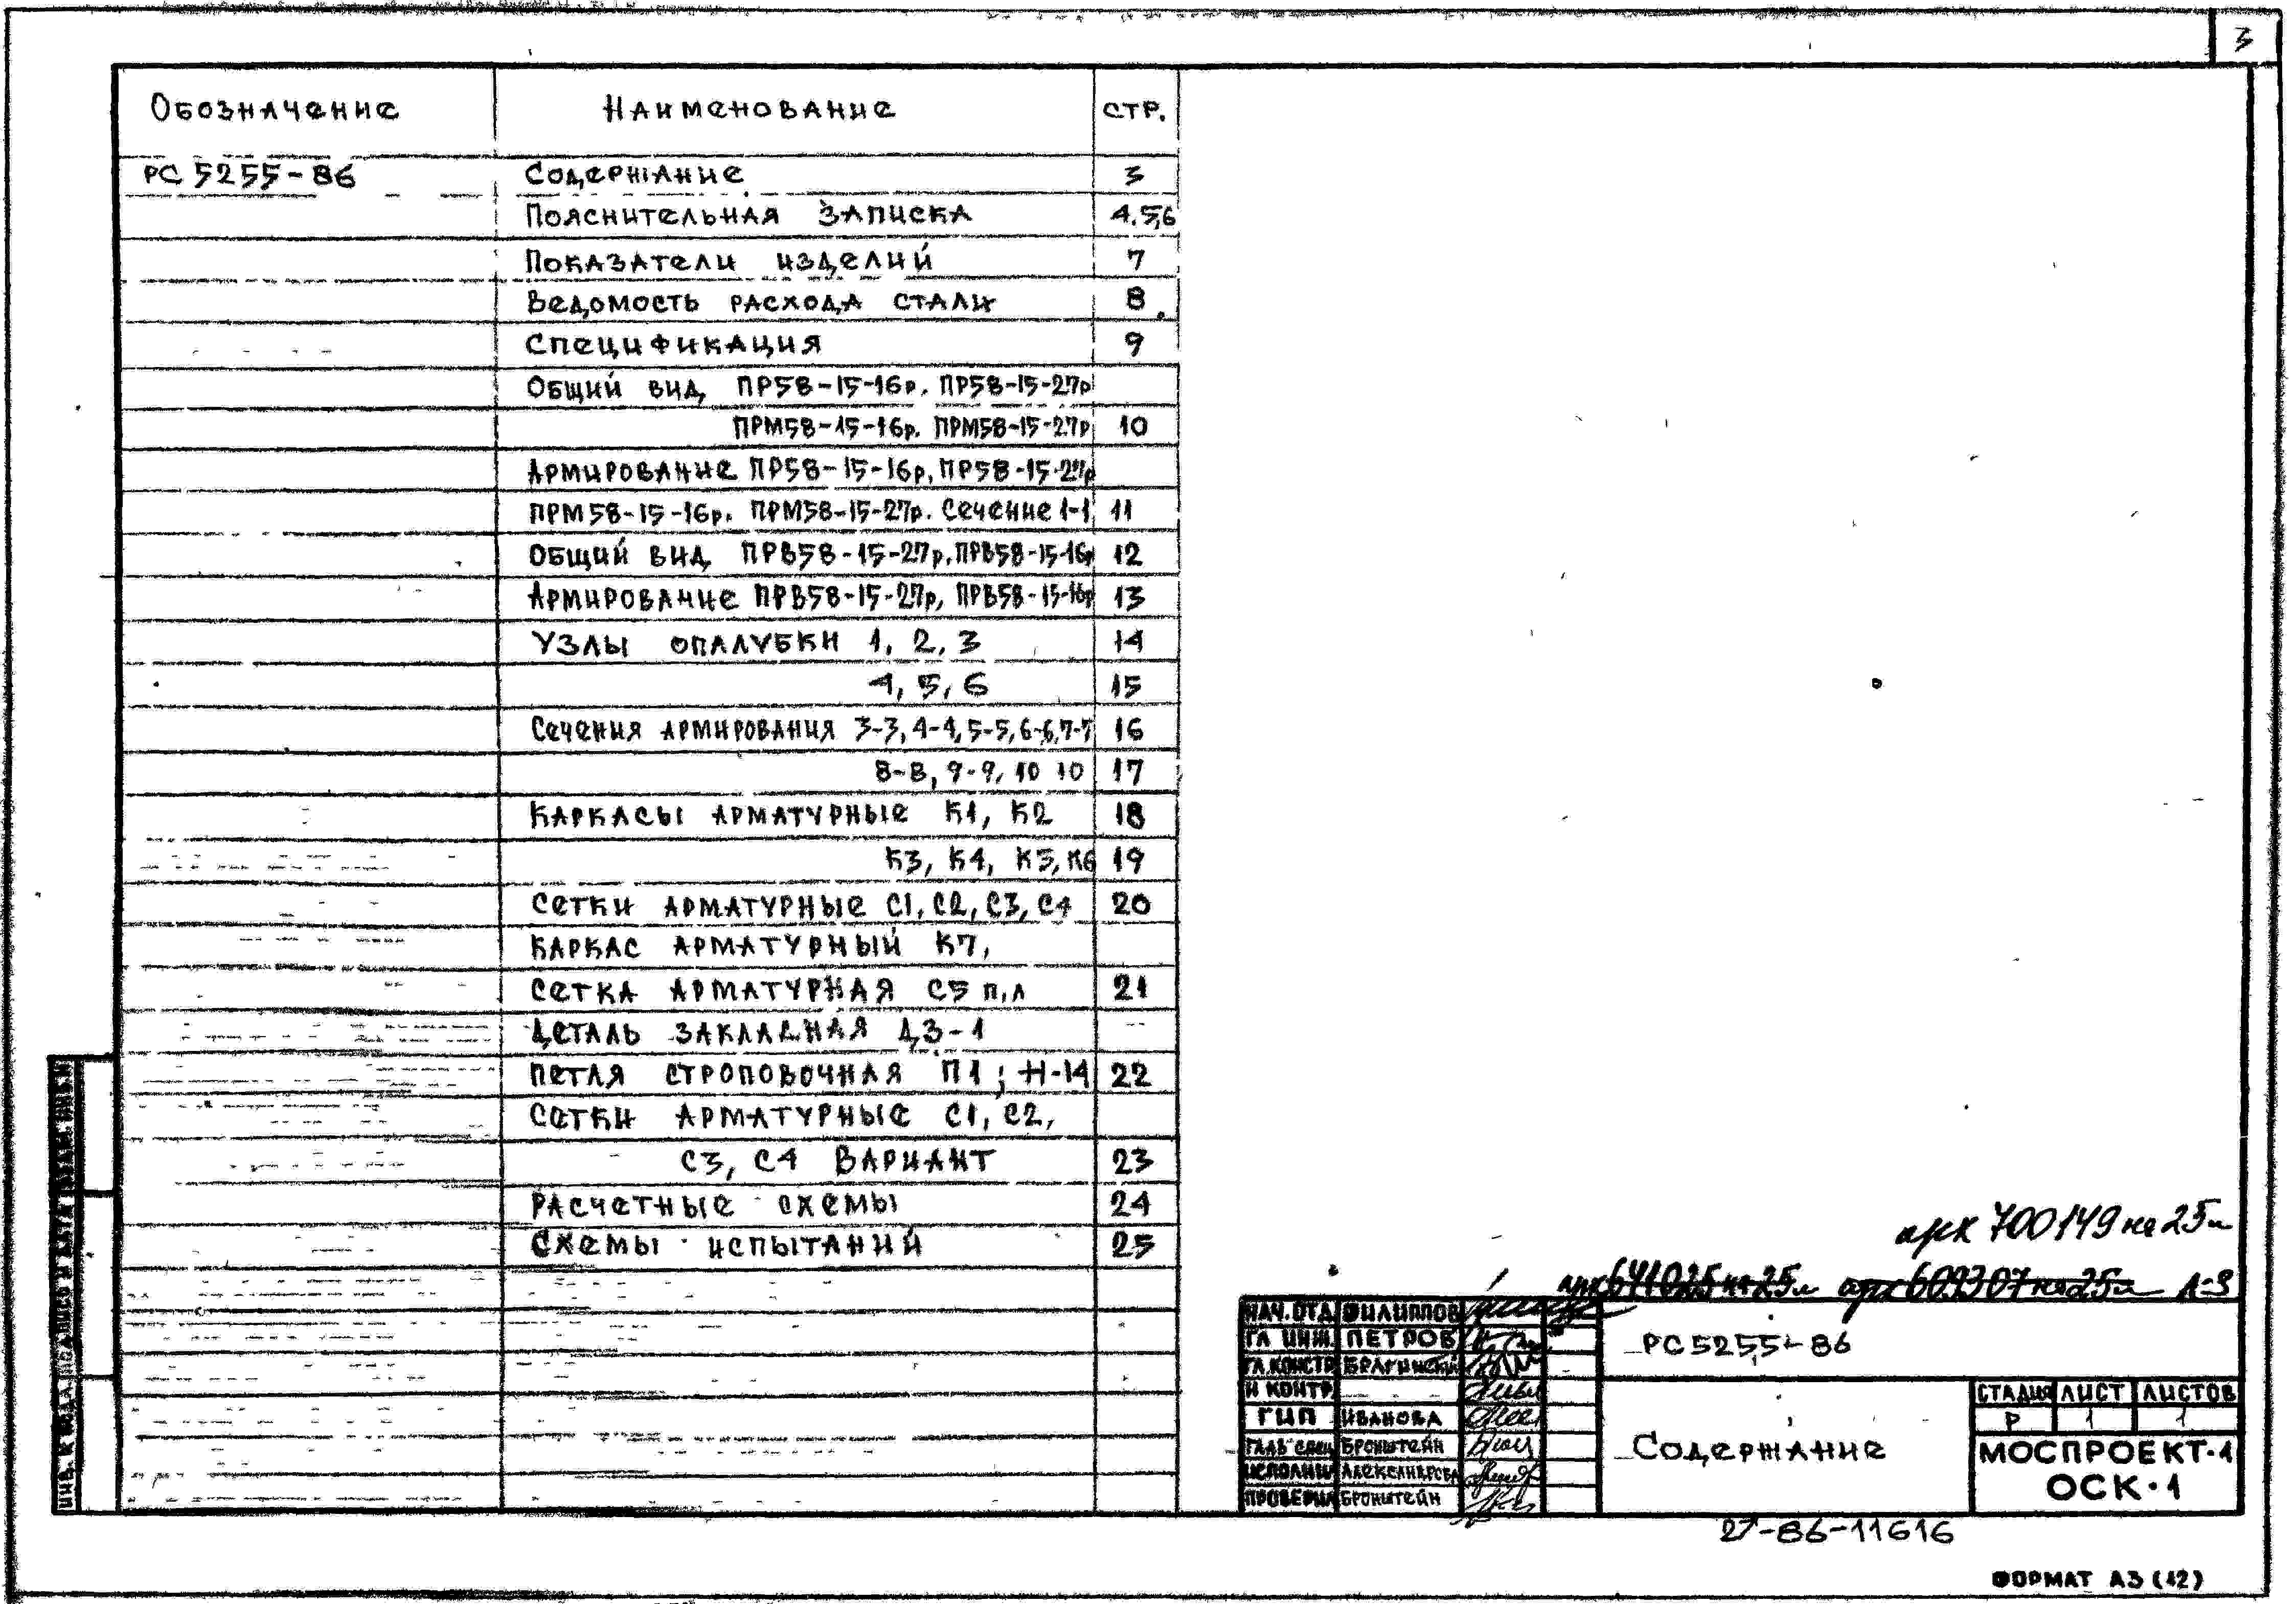 3
Обозначение Наименование стр.
РС 5255-86 Содержание 3
Пояснительная записка 4,5,6
Показатели изделий 7
Ведомость расхода стали 8
Спецификация 9
Общий вид ПР58-15-16р. ПР58-15-27р
ПРМ58-15-16р. ПРМ58-15-27р 10
Армирование ПР58-15-16р, ПР58-15-27р
ПРМ58-15-16р. ПРМ58-15-27р. Сечение 1-1 11
Общий вид ПРВ58-15-27р, ПРВ58-15-16р 12
Армирование ПРВ58-15-27р, ПРВ58-15-16р 13
Узлы опалубки 1, 2, 3 14
4, 5, 6 15
Сечения армирования 3-3, 4-4, 5-5, 6-6, 7-7 16
8-8, 9-9, 10 10 17
Каркасы арматурные К1, К2 18
К3, К4, К5, К6 19
Сетки арматурные С1, С2, С3, С4 20
Каркас арматурный К7,
Сетка арматурная С5 п,л 21
Деталь закладная ДЗ-1
Петля строповочная П1; Н-14 22
Сетки арматурные С1, С2,
С3, С4 вариант 23
Расчетные схемы 24
Схемы испытаний 25
арх 700149 на 25л
арх 641025 на 25л арх 609307 на 25л А-3
НАЧ. ОТД. ФИЛИППОВ
ГЛ ИНЖ. ПЕТРОВ
ГЛ.КОНСТР БРАГИНСКИЙ
Н КОНТР.
ГИП ИВАНОВА
ГЛАВ СПЕЦ БРОНШТЕЙН
ИСПОЛНИЛ АЛЕКСАНДРОВА
ПРОВЕРИЛ БРОНШТЕЙН
РС 5255-86
Содержание
СТАДИЯ ЛИСТ ЛИСТОВ
Р 1 1
МОСПРОЕКТ-1
ОСК·1
27-86-11616
ФОРМАТ А3 (12)
ИНВ. К ПОДЛ. ПОДПИСЬ И ДАТА ВЗАМ. ИНВ. N